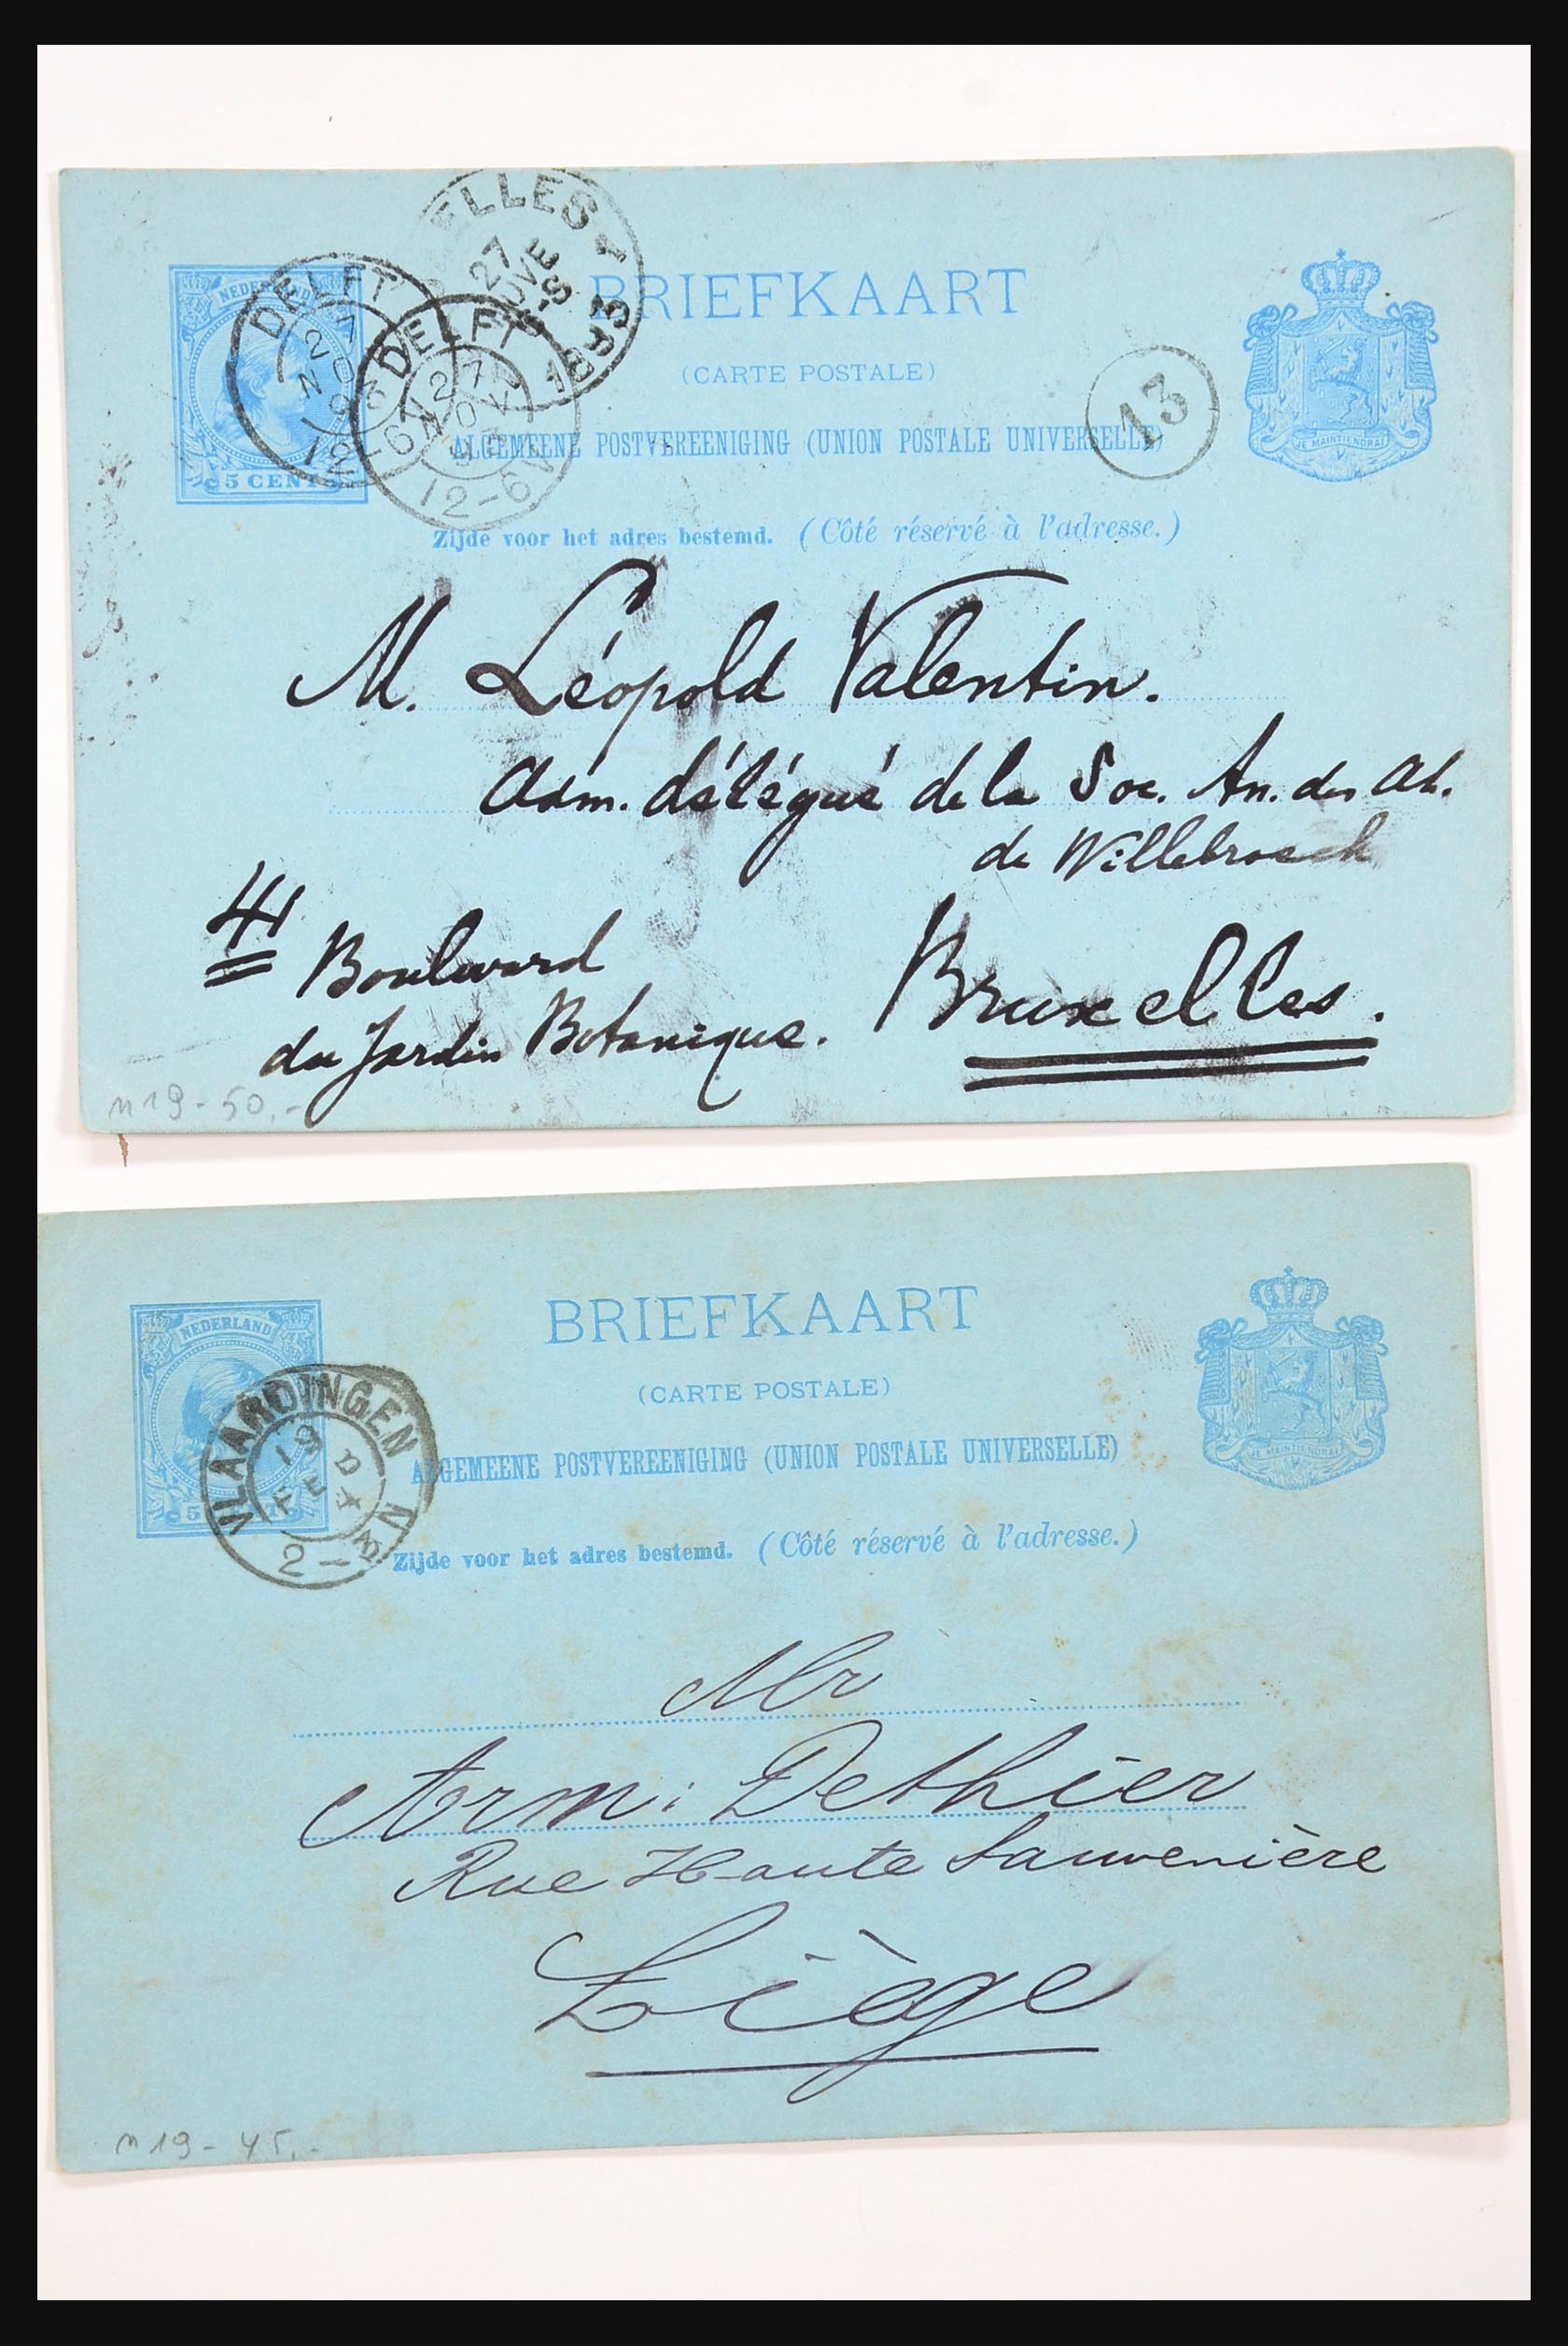 ELLES 1
27
1893
NEDERLAND
DELFT
27
NOV
93
12-6V
DELFT
27
NOV
93
12-6V
5 CENT
BRIEFKAART
(CARTE POSTALE)
13
ALGEMEENE POSTVEREENIGING (UNION POSTALE UNIVERSELLE)
JE MAINTIENDRAI
Zijde voor het adres bestemd. (Côté réservé à l'adresse.)
M. Léopold Valentin.
Adm. délégué de la Soc. An. des At.
de Willebroeck
41 Boulevard
du Jardin Botanique.
Bruxelles.
n19-50.-
NEDERLAND
VLAARDINGEN
19
FE
2-3N
5
BRIEFKAART
(CARTE POSTALE)
ALGEMEENE POSTVEREENIGING (UNION POSTALE UNIVERSELLE)
JE MAINTIENDRAI
Zijde voor het adres bestemd. (Côté réservé à l'adresse.)
Mr
Arm: Dethier
Rue Haute Sauvenière
Liège
n19-45.-